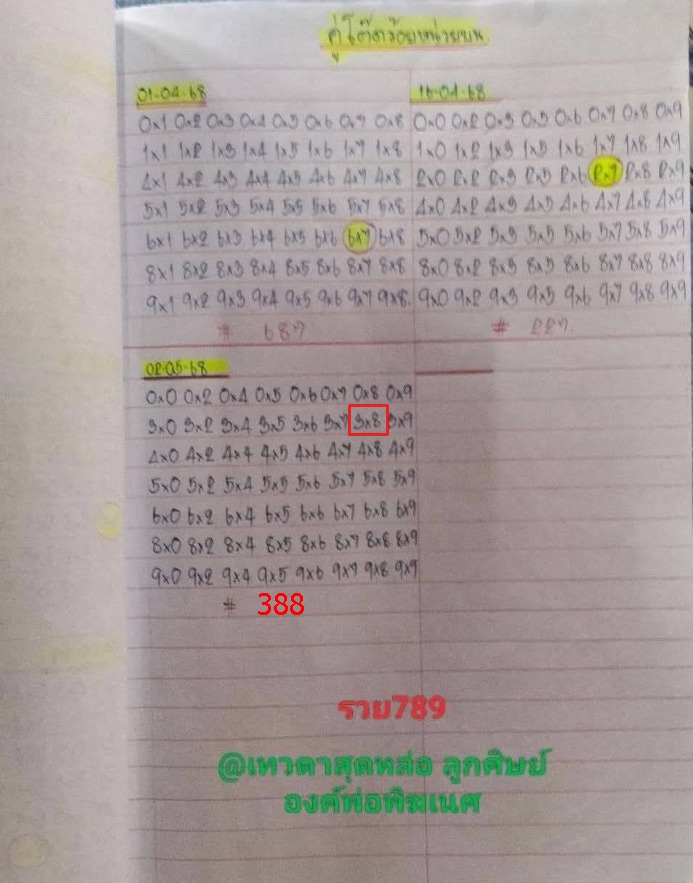 คู่โต๊ดร้อยหน่วยบน
01-04-68
0x1 0x2 0x3 0x4 0x5 0x6 0x7 0x8
1x1 1x2 1x3 1x4 1x5 1x6 1x7 1x8
4x1 4x2 4x3 4x4 4x5 4x6 4x7 4x8
5x1 5x2 5x3 5x4 5x5 5x6 5x7 5x8
6x1 6x2 6x3 6x4 6x5 6x6 6x7 6x8
8x1 8x2 8x3 8x4 8x5 8x6 8x7 8x8
9x1 9x2 9x3 9x4 9x5 9x6 9x7 9x8
# 687
16-04-68
0x0 0x2 0x3 0x5 0x6 0x7 0x8 0x9
1x0 1x2 1x3 1x5 1x6 1x7 1x8 1x9
2x0 2x2 2x3 2x5 2x6 2x7 2x8 2x9
4x0 4x2 4x3 4x5 4x6 4x7 4x8 4x9
5x0 5x2 5x3 5x5 5x6 5x7 5x8 5x9
8x0 8x2 8x3 8x5 8x6 8x7 8x8 8x9
9x0 9x2 9x3 9x5 9x6 9x7 9x8 9x9
# 227
02-05-68
0x0 0x2 0x4 0x5 0x6 0x7 0x8 0x9
3x0 3x2 3x4 3x5 3x6 3x7 3x8 3x9
4x0 4x2 4x4 4x5 4x6 4x7 4x8 4x9
5x0 5x2 5x4 5x5 5x6 5x7 5x8 5x9
6x0 6x2 6x4 6x5 6x6 6x7 6x8 6x9
8x0 8x2 8x4 8x5 8x6 8x7 8x8 8x9
9x0 9x2 9x4 9x5 9x6 9x7 9x8 9x9
# 388
รวย789
@เทวดาสุดหล่อ ลูกศิษย์
องค์พ่อพิฆเนศ